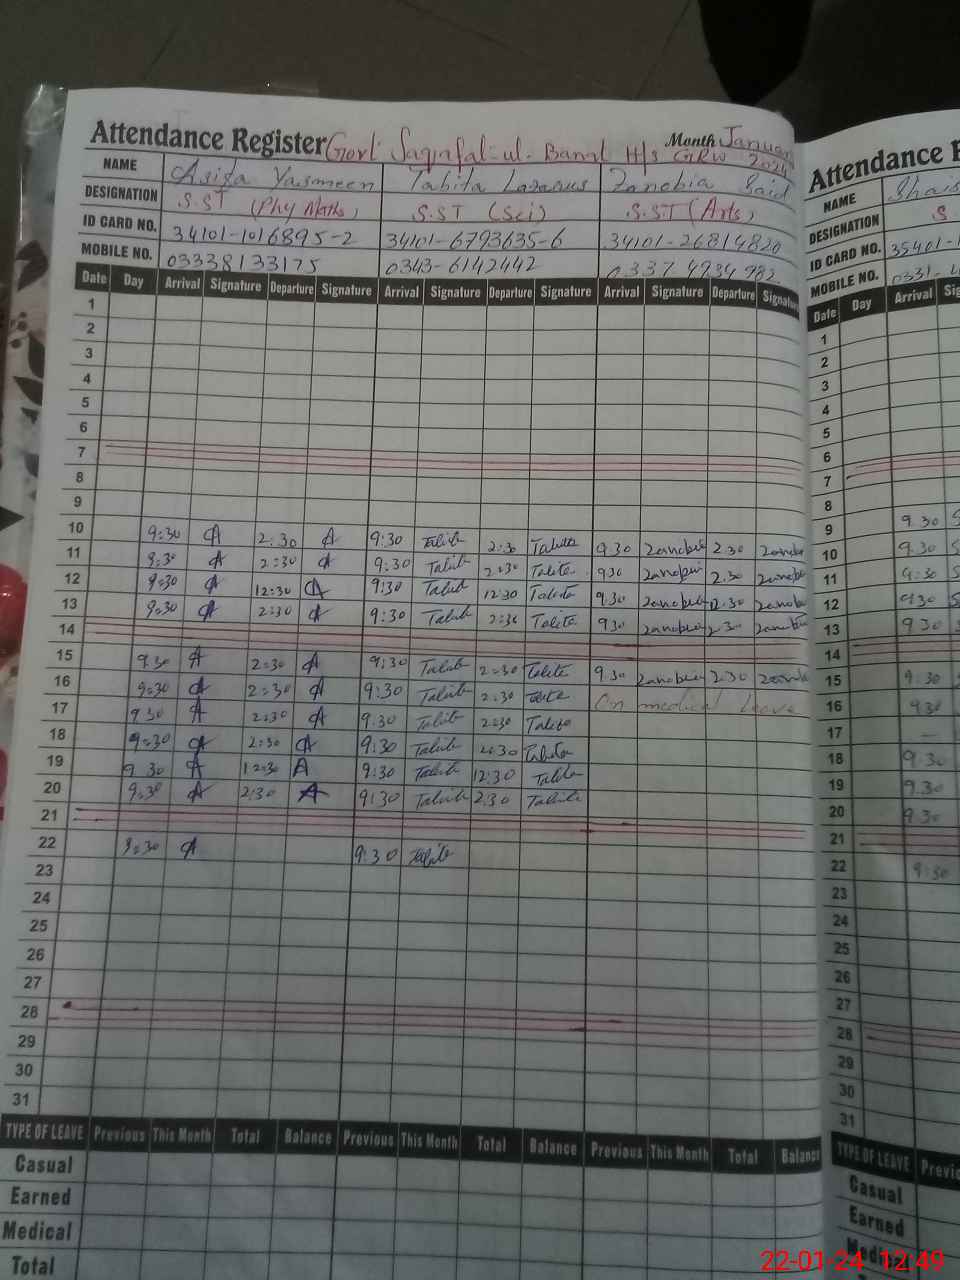 Attendance Register Govt Saqafat-ul-Banat H/S GRW Month January 2024
NAME Asifa Yasmeen Tabita Lazarus Zanobia Said
DESIGNATION S.ST (Phy Maths) S.ST (Sci) S.ST (Arts)
ID CARD NO. 34101-1016895-2 34101-6793635-6 34101-26814820
MOBILE NO. 03338133175 0343-6142442 0337 4934 982
Date Day Arrival Signature Departure Signature Arrival Signature Departure Signature Arrival Signature Departure Signature
1
2
3
4
5
6
7
8
9
10 9:30 A 2:30 A 9:30 Tabita 2:30 Tabita 9 30 Zanobia 2.30 Zanobia
11 9:30 A 2:30 A 9:30 Tabita 2:30 Tabita 930 Zanobia 2.30 Zanobia
12 9:30 A 12:30 A 9:30 Tabita 12:30 Tabita 9.30 Zanobia 12.30 Zanobia
13 9:30 A 2:30 A 9:30 Tabita 2:30 Tabita 930 Zanobia 2.30 Zanobia
14
15 9:30 A 2:30 A 9:30 Tabita 2:30 Tabita 9.30 Zanobia 2.30 Zanobia
16 9:30 A 2:30 A 9:30 Tabita 2:30 Tabita On medical leave
17 9:30 A 2:30 A 9.30 Tabita 2:30 Tabita
18 9:30 A 2:30 A 9:30 Tabita 2:30 Tabita
19 9 30 A 12:30 A 9:30 Tabita 12:30 Tabita
20 9:30 A 2:30 A 9:30 Tabita 2:30 Tabita
21
22 9:30 A 9:30 Tabita
23
24
25
26
27
28
29
30
31
TYPE OF LEAVE Previous This Month Total Balance Previous This Month Total Balance Previous This Month Total Balance
Casual
Earned
Medical
Total
Attendance
NAME
DESIGNATION S
ID CARD NO. 35401-
MOBILE NO. 0331-
Date Day Arrival
1
2
3
4
5
6
7
8
9 9.30 S
10 9.30 S
11 9:30 S
12 9:30 S
13 9.30 S
14
15 9:30
16 930
17 —
18 9.30
19 9.30
20 9.30
21
22 9:30
23
24
25
26
27
28
29
30
31
TYPE OF LEAVE
Casual
Earned
Medical
22-01-24 12:49